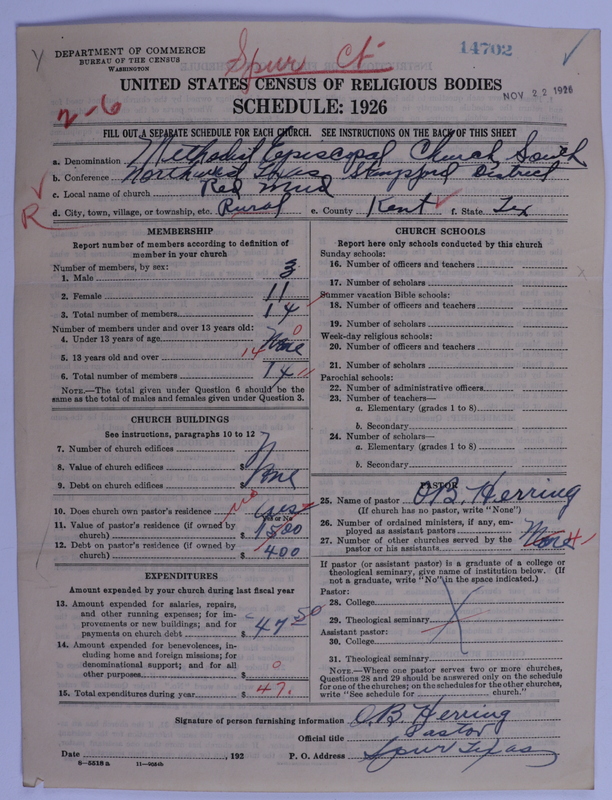 DEPARTMENT OF COMMERCE
BUREAU OF THE CENSUS
WASHINGTON
Spur Ct
14702
2-6
NOV 22 1926
UNITED STATES CENSUS OF RELIGIOUS BODIES
SCHEDULE: 1926
FILL OUT A SEPARATE SCHEDULE FOR EACH CHURCH. SEE INSTRUCTIONS ON THE BACK OF THIS SHEET
a. Denomination Methodist Episcopal Church South
b. Conference Northwest Texas Stampford District
c. Local name of church Red Mud
R
d. City, town, village, or township, etc. Rural e. County Kent f. State Tex
MEMBERSHIP
Report number of members according to definition of
member in your church
Number of members, by sex:
1. Male 3
2. Female 11
3. Total number of members 14
Number of members under and over 13 years old:
4. Under 13 years of age None 0
5. 13 years old and over 14
6. Total number of members 14
NOTE.—The total given under Question 6 should be the
same as the total of males and females given under Question 3.
CHURCH BUILDINGS
See instructions, paragraphs 10 to 12
7. Number of church edifices
8. Value of church edifices $ None
9. Debt on church edifices $
10. Does church own pastor's residence no yes
Yes or No
11. Value of pastor's residence (if owned by
church) $ 1500
12. Debt on pastor's residence (if owned by
church) $ 400
EXPENDITURES
Amount expended by your church during last fiscal year
13. Amount expended for salaries, repairs,
and other running expenses; for im-
provements or new buildings; and for
payments on church debt $ 47 50
14. Amount expended for benevolences, in-
cluding home and foreign missions; for
denominational support; and for all
other purposes $ 0
15. Total expenditures during year $ 47.
CHURCH SCHOOLS
Report here only schools conducted by this church
Sunday schools:
16. Number of officers and teachers
17. Number of scholars
Summer vacation Bible schools:
18. Number of officers and teachers
19. Number of scholars
Week-day religious schools:
20. Number of officers and teachers
21. Number of scholars
Parochial schools:
22. Number of administrative officers
23. Number of teachers—
a. Elementary (grades 1 to 8)
b. Secondary
24. Number of scholars—
a. Elementary (grades 1 to 8)
b. Secondary
PASTOR
25. Name of pastor O B. Herring
(If church has no pastor, write "None")
26. Number of ordained ministers, if any, em-
ployed as assistant pastors
27. Number of other churches served by the
pastor or his assistants None
If pastor (or assistant pastor) is a graduate of a college or
theological seminary, give name of institution below. (If
not a graduate, write "No" in the space indicated.)
Pastor:
28. College
29. Theological seminary
Assistant pastor:
30. College
31. Theological seminary
NOTE.—Where one pastor serves two or more churches,
Questions 28 and 29 should be answered only on the schedule
for one of the churches; on the schedules for the other churches,
write "See schedule for church."
Signature of person furnishing information O B Herring
Official title Pastor
Date , 192 P. O. Address Spur Texas
8—5518 a